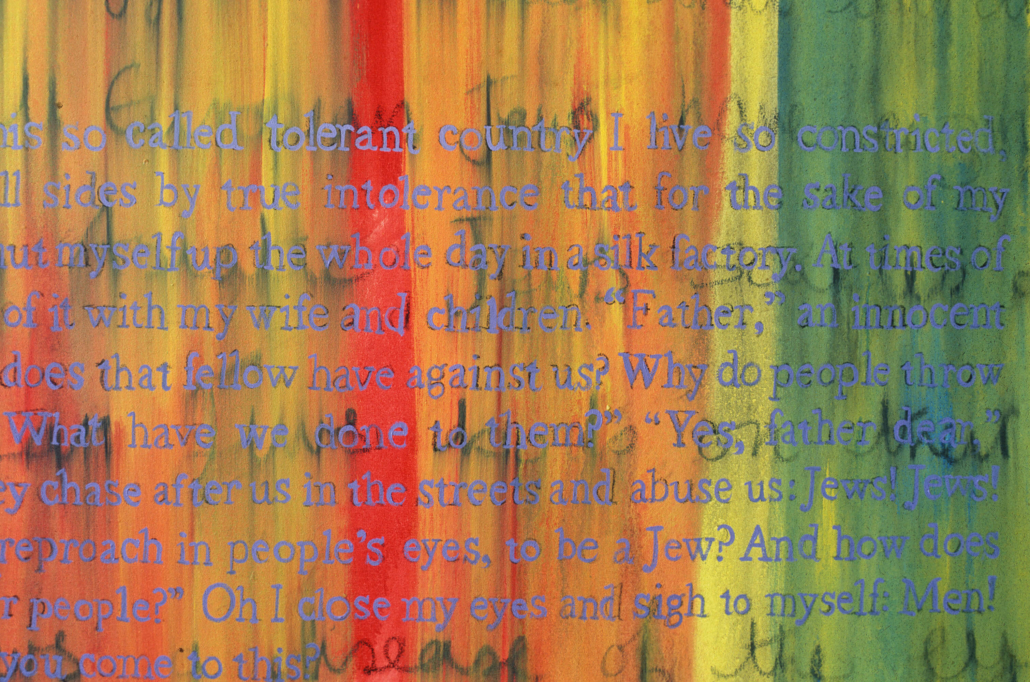 his so called tolerant country I live so constricted,
ll sides by true intolerance that for the sake of my
hut myself up the whole day in a silk factory. At times of
of it with my wife and children. “Father,” an innocent
does that fellow have against us? Why do people throw
What have we done to them?” “Yes, father dear,”
ey chase after us in the streets and abuse us: Jews! Jews!
reproach in people’s eyes, to be a Jew? And how does
r people?” Oh I close my eyes and sigh to myself: Men!
you come to this?
of the